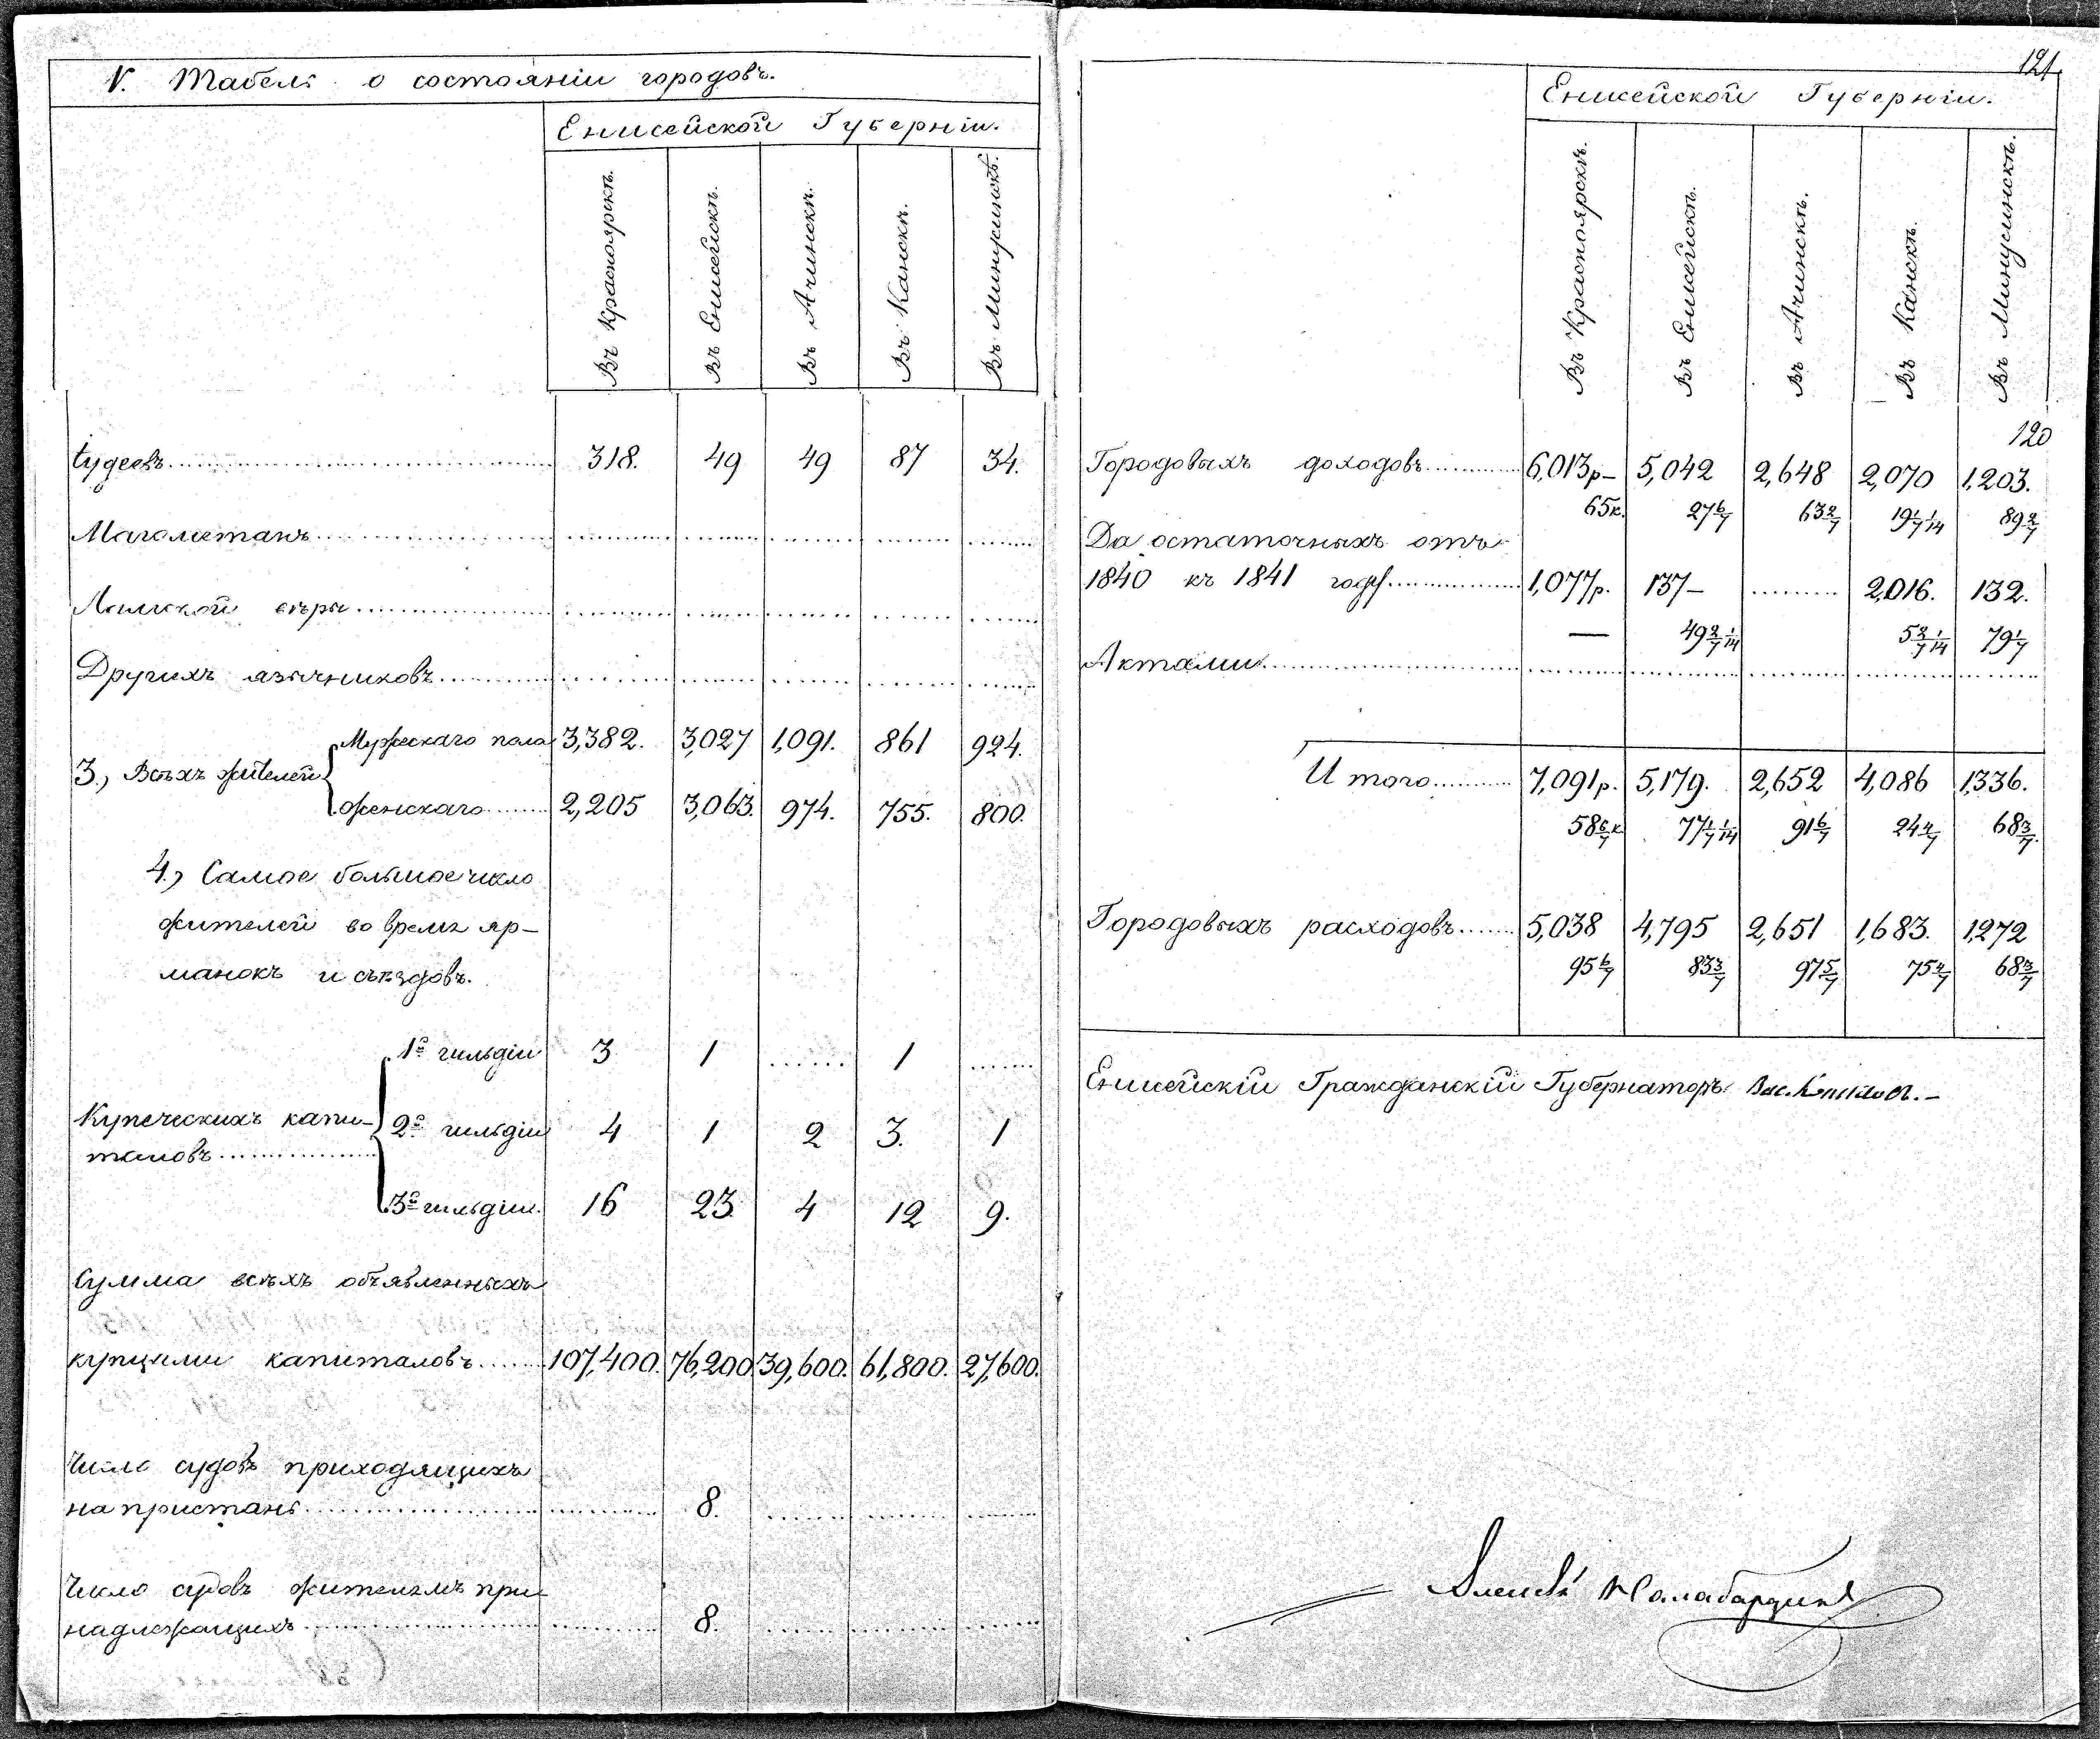 V. Табель о состоянiи городовъ.
Енисейской Губернiи.
Въ Красноярскѣ.
Въ Енисейскѣ.
Въ Ачинскѣ.
Въ Канскѣ.
Въ Минусинскѣ.
Iудеевъ 318. 49 49 87 34.
Магометанъ
Ламской вѣры
Другихъ язычниковъ
3., Всѣхъ жителей
Мужескаго пола 3,382. 3,027 1,091. 861 924.
женскаго 2,205 3,063. 974. 755. 800.
4., Самое большое число
жителей во время яр-
манокъ и съѣздовъ.
Купеческихъ капи-
таловъ
1й гильдiи 3 1 1
2й гильдiи 4 1 2 3. 1
3й гильдiи. 16 23. 4 12 9.
Сумма всѣхъ объявленныхъ
купцами капиталовъ 107,400. 76,200 39,600. 61,800. 27,600.
Число судовъ приходящихъ
на пристань 8.
Число судовъ жителямъ при
надлежащихъ 8.
121
Енисейской Губернiи.
Въ Красноярскѣ.
Въ Енисейскѣ.
Въ Ачинскѣ.
Въ Канскѣ.
Въ Минусинскѣ.
120
Городовыхъ доходовъ 6,013р- 5,042 2,648 2,070 1,203.
65к. 27 6/7 63 2/7 19 1/7 1/14 89 2/7
Да остаточныхъ отъ
1840 къ 1841 году 1,077р. 137- 2,016. 132.
— 49 2/7 1/14 5 2/7 1/14 79 1/7
Актами
Итого 7,091р. 5,179. 2,652 4,086 1,336.
58 6/7 к 77 1/7 1/14 91 6/7 24 4/7 68 3/7.
Городовыхъ расходовъ 5,038 4,795 2,651 1,683. 1,272
95 6/7 83 3/7 97 5/7 75 4/7 68 3/7
Енисейскiй Гражданскiй Губернаторъ Вас. Копыловъ.-
Алексѣй